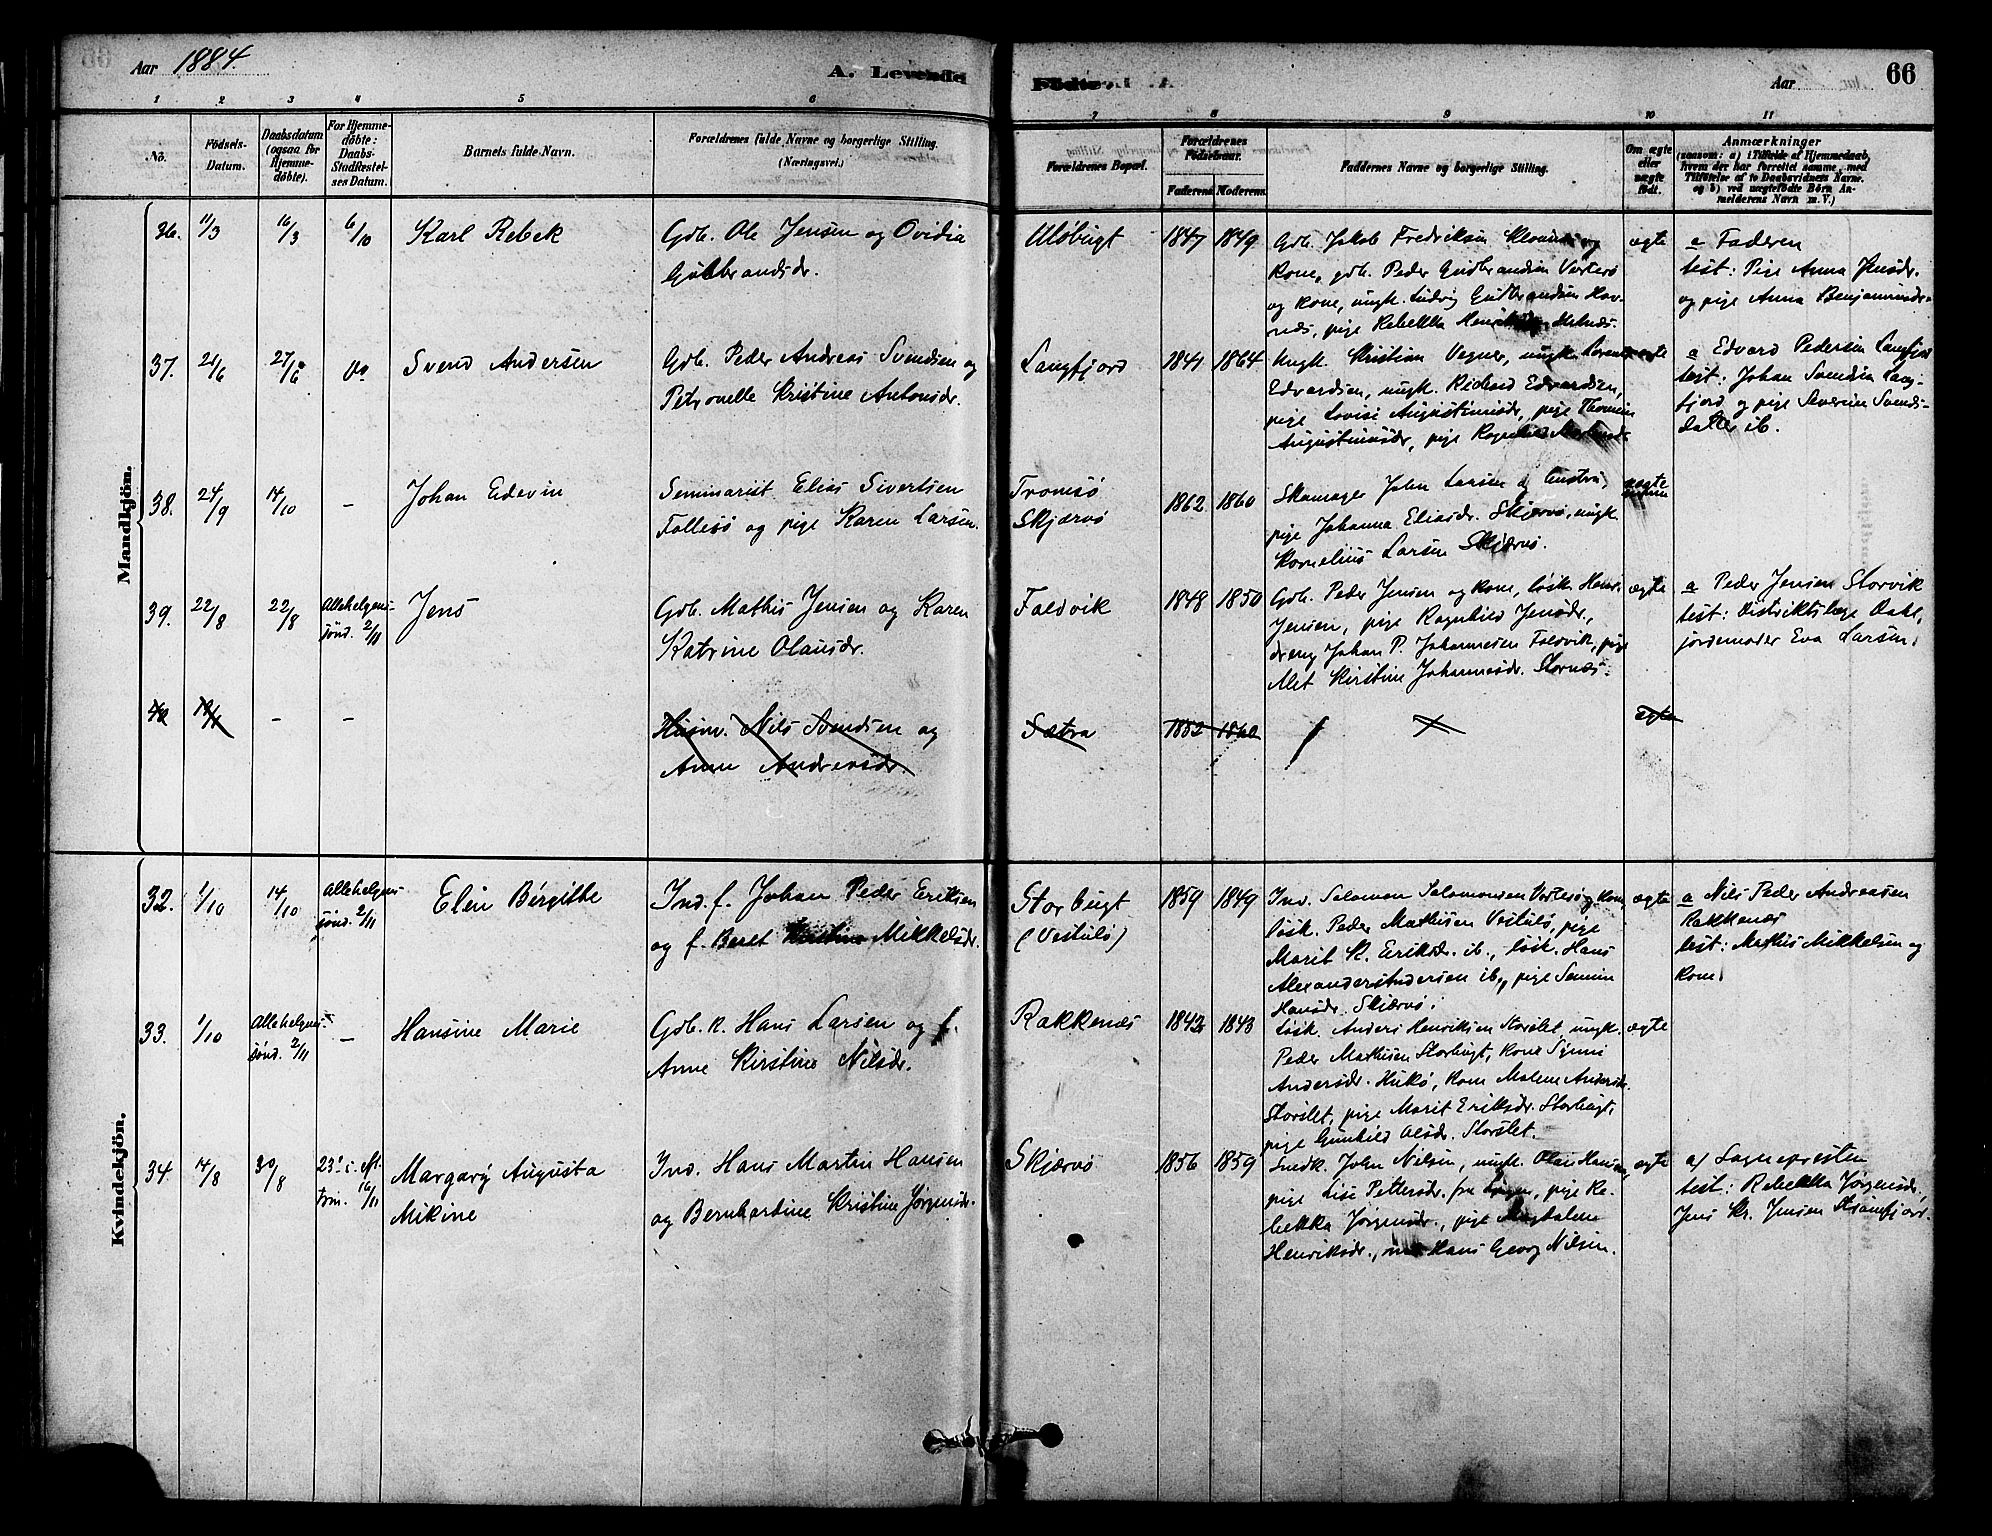 Aar 1884.
A. Levende Fødte.
Aar
66
1 2 3 4 5 6 7 8 9 10 11
No.
Fødsels-
Datum.
Daabsdatum
(ogsaa for
Hjemme-
døbte).
For Hjemme-
døbte:
Daabs-
Stadfæstel-
ses Datum.
Barnets fulde Navn.
Forældrenes fulde Navne og borgerlige Stilling.
(Næringsvei.)
Forældrenes Bopæl.
Forældrenes
Fødselsaar.
Faderens. Moderens.
Faddernes Navne og borgerlige Stilling.
Om ægte
eller
uægte
født.
Anmærkninger
(saasom: a) i Tilfælde af Hjemmedaab,
hvem der har forrettet samme, med
Tilføielse af to Daabsvidners Navne.
og b) ved uægtefødte Børn An-
melderens Navn m. V.)
Mandkjön.
36. 11/3 16/3 6/10 Karl Rebek
Gdb. Ole Jensen og Ovidia
Gulbrandsdr.
Uløbugt 1847 1849
Gdb. Jakob Fredriksen og
Kone, gdb. Peder Gudbrandsen Vorterø
og kone, ungk. Ludvig Gudbrandsen Hav-
næs, pige Rebekka
ægte
a Faderen
test: Pige Anna Jensdr.
og pige Anna Benjaminsdr.
37. 21/6 27/6 Do Svend Andersen
Gdb. Peder Andreas Svendsen og
Petronelle Kristine Antonsdr.
Langfjord 1841 1864
Ungk. Kristian Vegner, ungk.
Edvardsen, ungk. Richard Edvardsen,
pige Lovise Augustinusdr, pige
Augustinusdr, pige Ragnhild
ægte
a Edvard Pedersen Langfjord
test: Johan Svendsen Lang-
fjord og pige Severine Svends-
datter ib.
38. 24/9 14/10 - Johan Edevin
Seminarist Elias Sivertsen
Follesø og pige Karen Larsen.
Tromsø
Skjærvø
1862 1860
Skomager John Larsen og
pige Johanna Eliasdr. Skjærvø, ungk.
Kornelius Larsen Skjærvø.
uægte
39. 22/8 22/8 Allehelgens-
sønd. 2/11 Jens
Gdb. Mathis Jensen og Karen
Katrine Olausdr.
Faldvik 1848 1850
Gdb. Peder Jensen og kone, løsk. Hans
Jensen, pige Ragnhild Jensdr.,
dreng Johan P. Johannesen Faldvik, pige
Alet Kirstine Johannesdr. Stornæs.
ægte
a Peder Jensen Storvik
test: Distriktslæge Dahl,
jordemoder Eva Larsen.
40 - -
Husm. Nils Svendsen og
Anne Andersdr.
Sætra 1852 1860
ægte
Kvindekjön.
32. 1/10 14/10 Allehelgens-
sønd. 2/11 Elen Birgithe
Ind. f. Johan Peder Eriksen
og f. Beret Kirstine Mikkelsdr.
Storbugt
(Vestulø)
1859 1849
Inv. Salomon Salomonsen Vorterø og kone,
løsk. Peder Mathisen Vestulø, pige
Marit K. Eriksdr. ib., løsk. Hans
Alexander Andersen ib., pige
Hansdr. Skjærvø.
ægte
a Nils Peder Andreasen
Rakkenæs
test: Mathis Mikkelsen og
kone
33. 1/10 Allehelgens-
sønd. 2/11 - Hansine Marie
Gdb. k. Hans Larsen og f.
Anne Kirstine Nilsdr.
Rakkenæs 1842 1843
Løsk. Anders Henriksen Storslet, ungk.
Peder Mathisen Storbugt, kone
Andersdr. Hukø, kone Malene Andersdr.
Storslet, pige Marit Eriksdr. Storbugt,
pige Gunhild Olsdr. Storslet.
ægte
34. 14/8 30/8 23' s. eft.
trin. 16/11
Margarg Augusta
Mikine
Ind. Hans Martin Hansen
og Bernhardine Kristine Jørgensdr.
Skjærvø 1856 1859
Snedk. John Nilsen, ungk. Olai Hansen,
pige Lise Pettersdr. fra , pige Re-
bekka Jørgensdr., pige Magdalene
Henriksdr., Hans Georg Nilsen.
ægte
a) Sognepresten
test: Rebekka Jørgensdr,
Jens Kr. Jensen